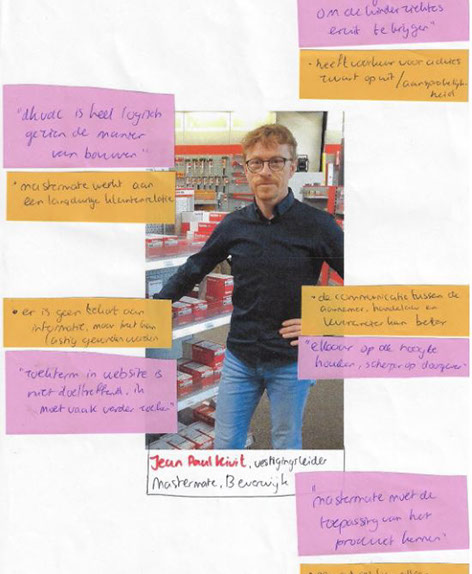 om de hinderziektes
eruit te krijgen"
• heeft voorkeur voor advies
zwart op wit/aansprakelijk-
heid
is heel logisch
gezien de manier
van bouwen"
• mastermate werkt aan
een langdurige klantenrelatie
• er is geen tekort aan
informatie, maar het kan
lastig gevonden worden
• de communicatie tussen de
aannemer, handelaar en
leverancier kan beter
"elkaar op de hoogte
houden, scherper op doorgeven"
"zoekterm in website is
niet doeltreffend, ik
moet vaak verder zoeken"
Jean Paul Kivit, vestigingsleider
Mastermate, Beverwijk
"mastermate moet de
toepassing van het
product kennen"